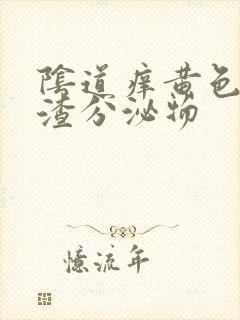 陰道痒黄色
渣分泌物
憶流年